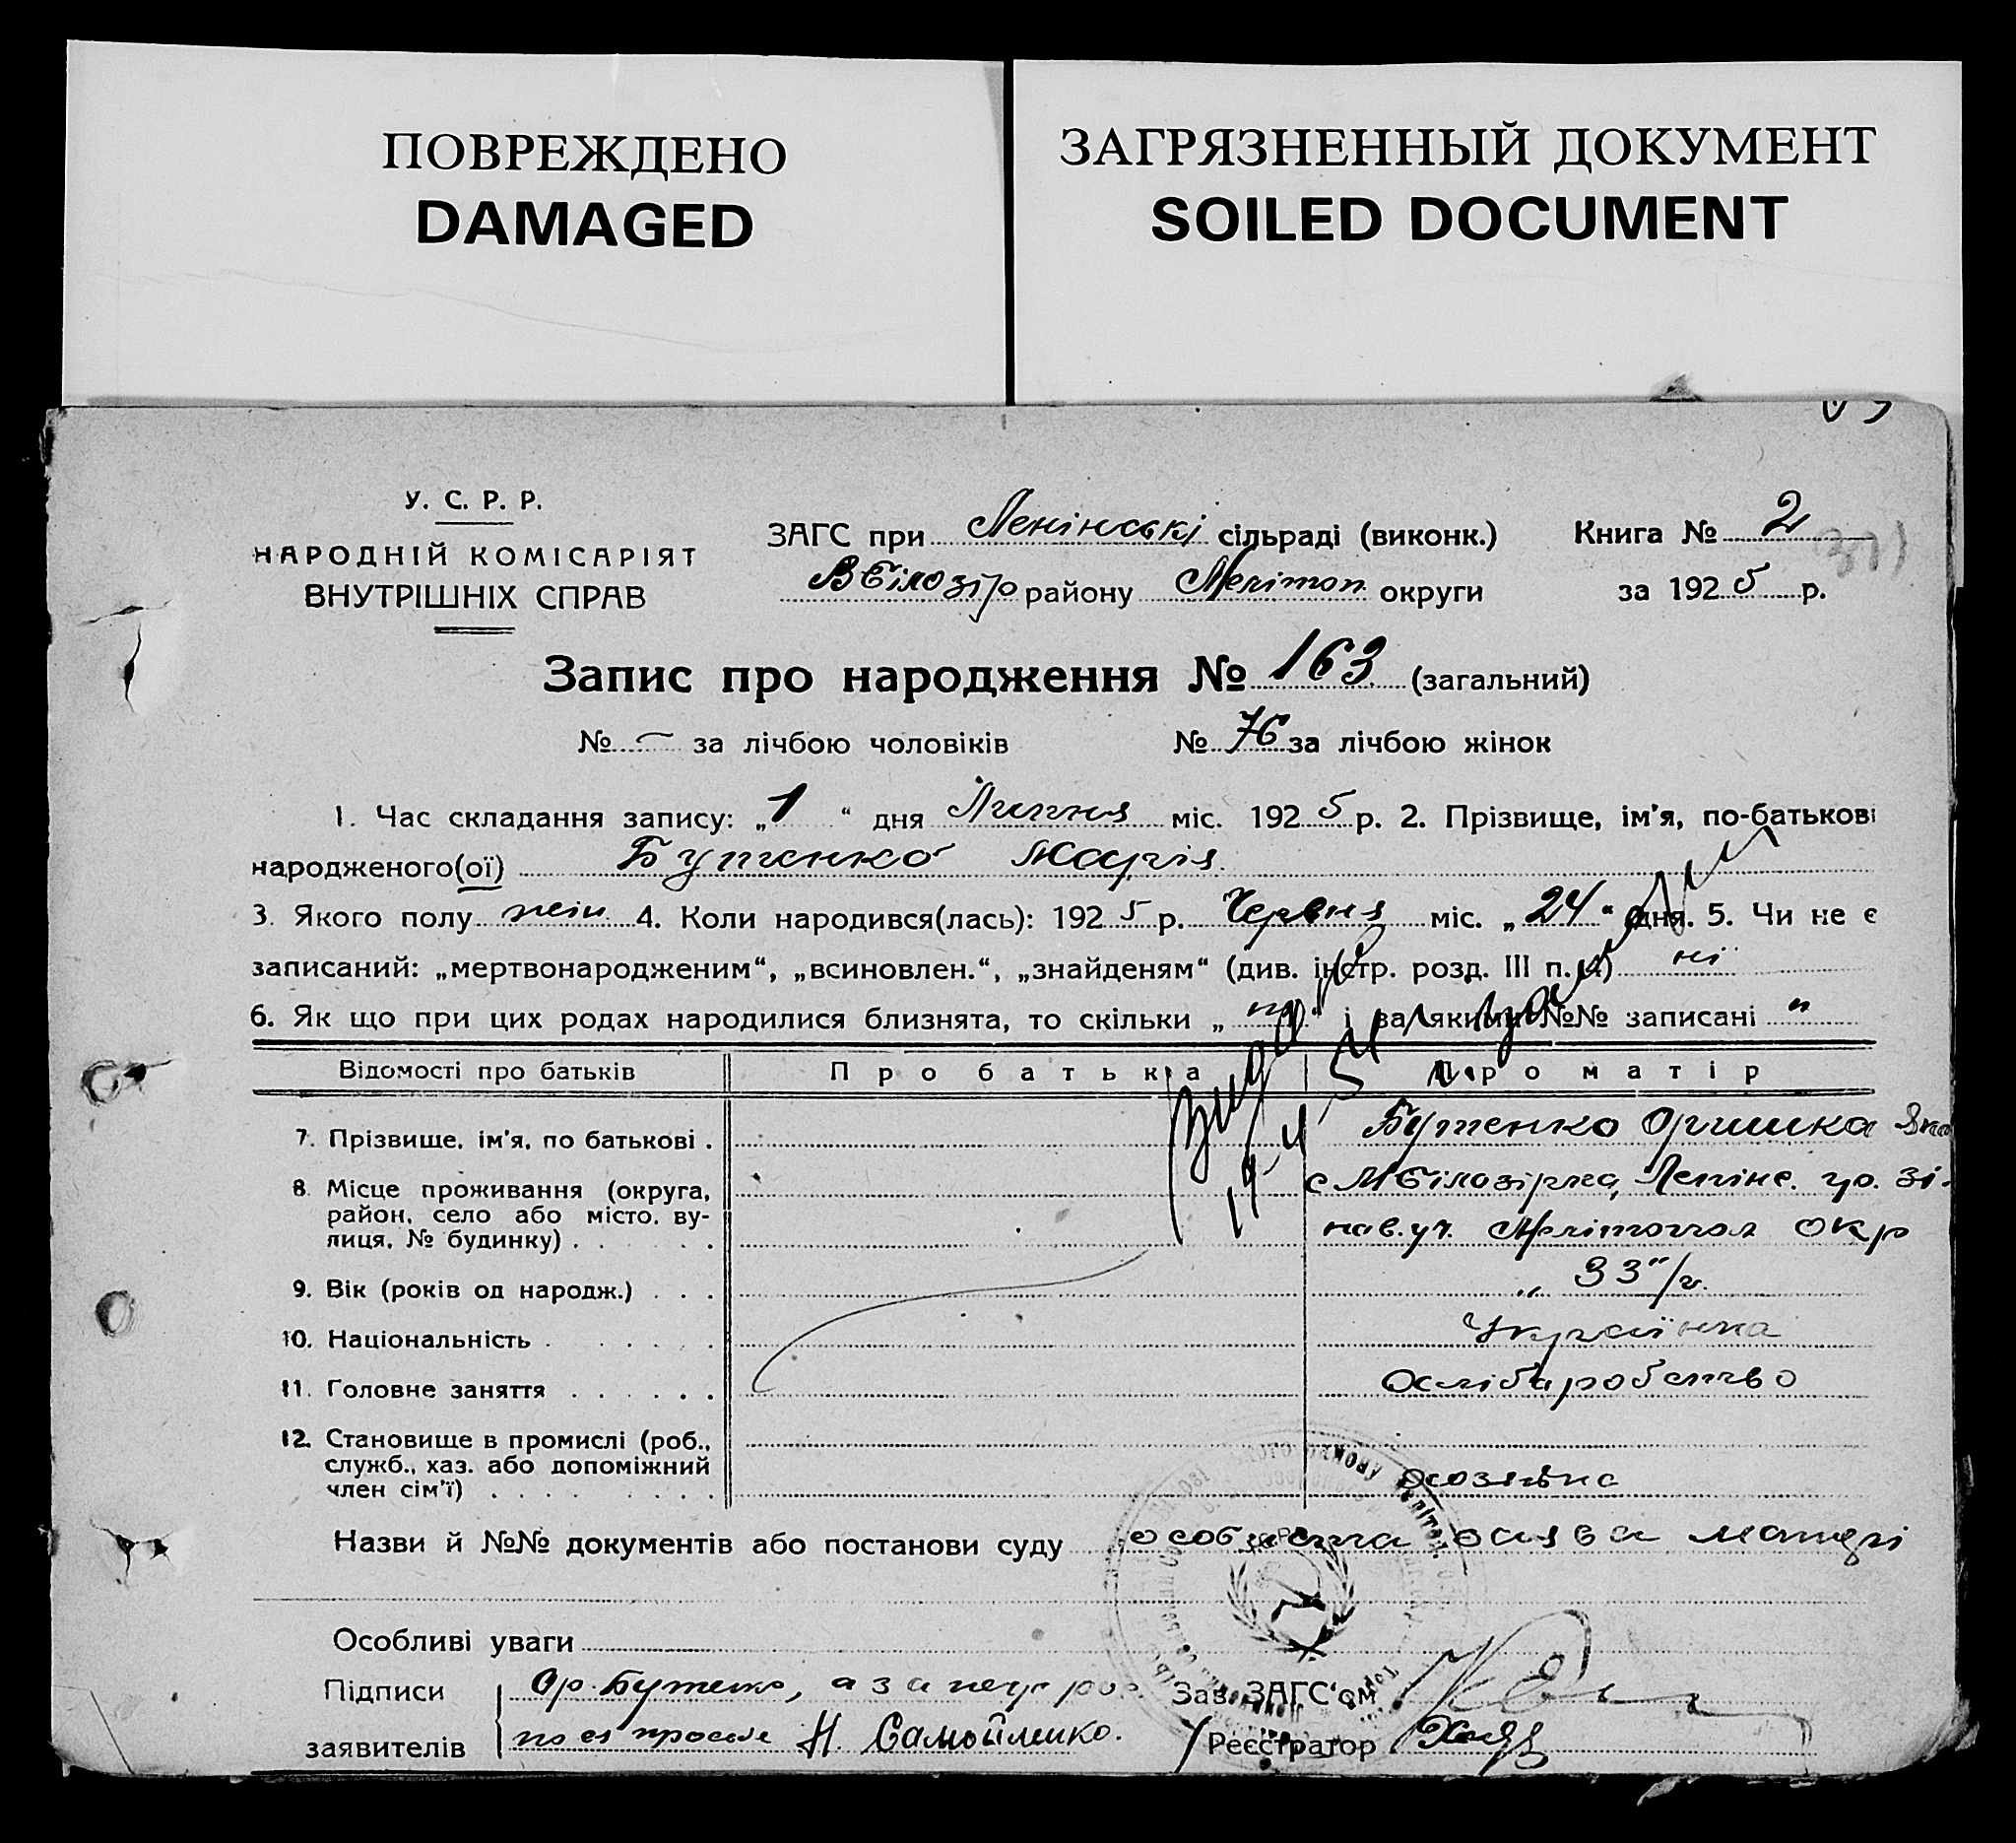 ПОВРЕЖДЕНО
DAMAGED
ЗАГРЯЗНЕННЫЙ ДОКУМЕНТ
SOILED DOCUMENT
У. С. Р. Р.
НАРОДНІЙ КОМІСАРІЯТ
ВНУТРІШНІХ СПРАВ
ЗАГС при Ленінські сільраді (виконк.) Книга № 2
В Білозір району Меліт округи за 1925 р.
Запис про народження № 163 (загальний)
№ — за лічбою чоловіків № 76 за лічбою жінок
1. Час складання запису: „1“ дня Липня міс. 1925 р. 2. Прізвище, ім'я, по-батькові
народженого(ої) Бутенко Марія
3. Якого полу жін 4. Коли народився(лась): 1925 р. Червня міс. „24“ дня. 5. Чи не є
записаний: „мертвонародженим“, „всиновлен.“, „знайденям“ (див. інстр. розд. III п. ) ні
6. Як що при цих родах народилися близнята, то скільки „ “ і за якими №№ записані "
Відомості про батьків Про батька Про матір
7. Прізвище, ім'я, по батькові . Бутенко Оришка
8. Місце проживання (округа, с М Білозірка, Лепінс.
район, село або місто, ву-
лиця, № будинку) . окр
9. Вік (років од народж.) . . . „ 33"/г.
10. Національність . Українка
11. Головне заняття . хліборобство
12. Становище в промислі (роб.,
служб., хаз. або допоміжний
член сім'ї) . хозяйка
Назви й №№ документів або постанови суду особиста заява матері
Особливі уваги
Підписи Ор. Бутенко, а за негр
заявителів по ея просьбе Н. Самойленко.
Зав. ЗАГС'ом
Реєстратор